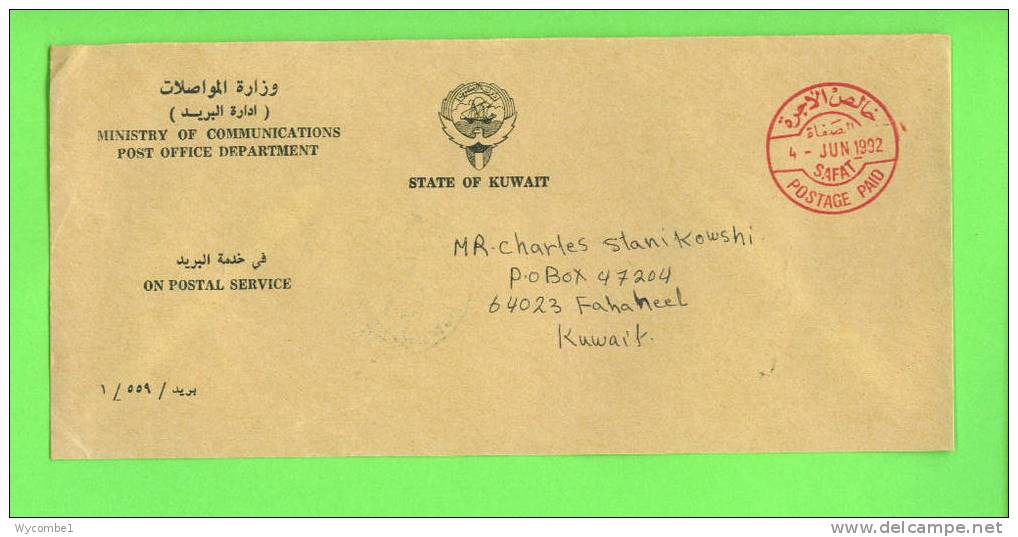 وزارة المواصلات
( ادارة البريد )
MINISTRY OF COMMUNICATIONS
POST OFFICE DEPARTMENT
STATE OF KUWAIT
خالص الأجرة
الصفاة
4 - JUN 1992
SAFAT
POSTAGE PAID
في خدمة البريد
ON POSTAL SERVICE
MR. Charles Stanikowshi
P.O Box 47204
64023 Fahaheel
Kuwait.
بريد / ٥٥٩ / ١
Wycombe1
delcampe.net